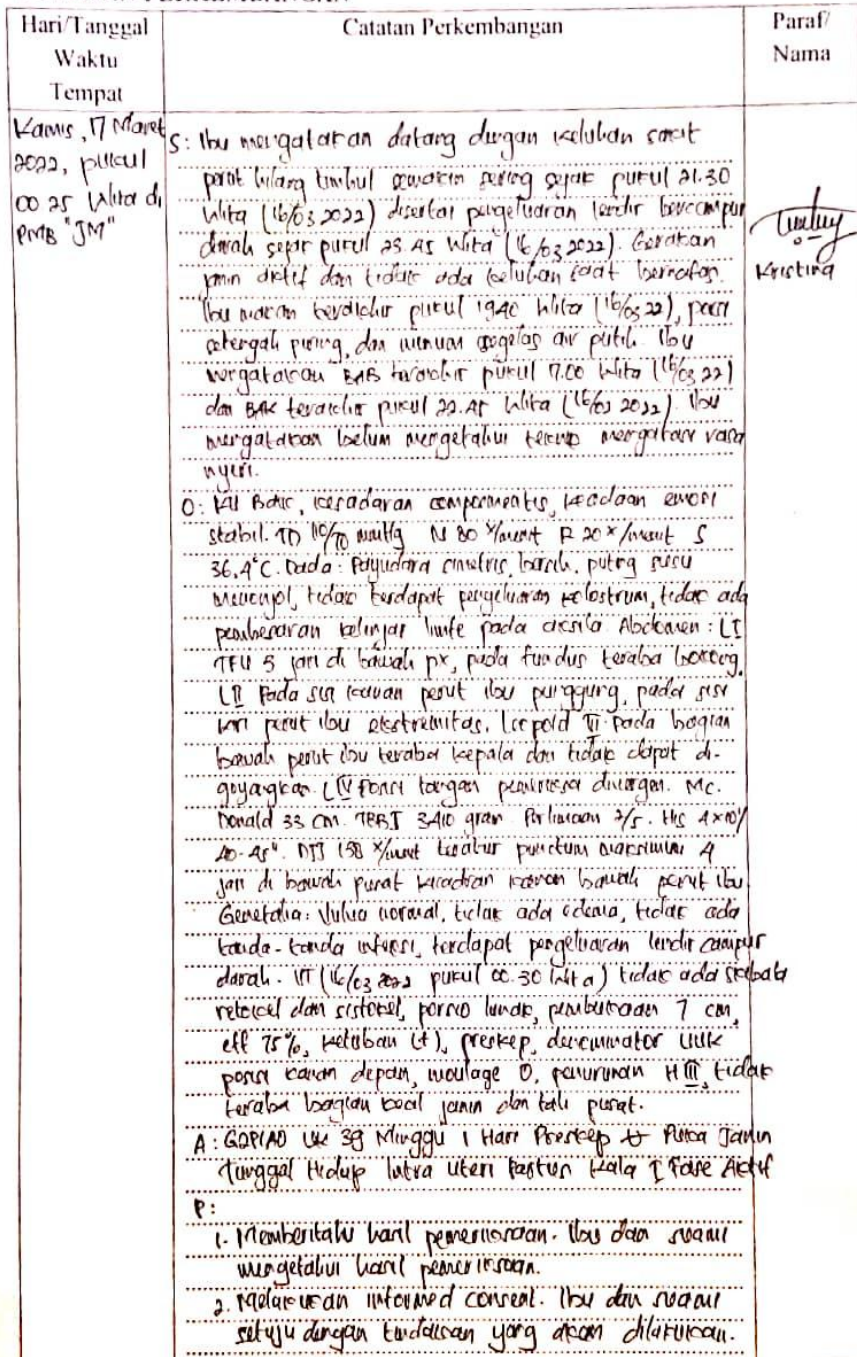 Hari/Tanggal
Waktu
Tempat
Catatan Perkembangan
Paraf/
Nama
Kamis, 17 Maret
2022, pukul
00.25 Wita di
PMB "JM"
S: Ibu mengatakan datang dengan keluhan sakit
perut hilang timbul semakin sering sejak pukul 21.30
Wita (16/03 2022) disertai pengeluaran lendir bercampur
darah sejak pukul 23.45 Wita (16/03 2022). Gerakan
janin aktif dan tidak ada keluhan saat bernafas.
Ibu makan terakhir pukul 19.40 Wita (16/03 22), porsi
setengah piring, dan minum segelas air putih. Ibu
mengatakan BAB terakhir pukul 7.00 Wita (16/03 22)
dan BAK terakhir pukul 22.45 Wita (16/03 2022). Ibu
mengatakan belum mengetahui teknik mengatasi rasa
nyeri.
Kristina
O: KU Baik, kesadaran composmentis, keadaan emosi
stabil. TD 110/70 mmHg N 80 x/menit R 20 x/menit S
36,4°C. Dada: Payudara simetris, bersih, puting susu
menonjol, tidak terdapat pengeluaran kolostrum, tidak ada
pembesaran kelenjar limfe pada aksila. Abdomen: LI
TFU 3 jari di bawah px, pada fundus teraba bokong.
LII Pada sisi kanan perut ibu punggung, pada sisi
kiri perut ibu ekstremitas. Leopold III pada bagian
bawah perut ibu teraba kepala dan tidak dapat di-
goyangkan. LIV Posisi tangan pemeriksa divergen. Mc.
Donald 33 cm. TBBJ 3410 gram. Perlimaan 2/5. His 4x10'/
40-45". DJJ 138 x/menit teratur punctum maksimum 4
jari di bawah pusat kuadran kanan bawah perut ibu
Genetalia: Vulva normal, tidak ada edema, tidak ada
tanda-tanda infeksi, terdapat pengeluaran lendir campur
darah. VT (16/03 2022 pukul 00.30 Wita) tidak ada
retokel dan sistokel, porsio lunak, pembukaan 7 cm,
eff 75%, ketuban (+), preskep, denominator UUK
posisi kanan depan, moulage 0, penurunan HIII, tidak
teraba bagian kecil janin dan tali pusat.
A: G2P1A0 UK 39 Minggu 1 Hari Preskep Puka Janin
Tunggal Hidup Intra Uteri Partus Kala I Fase Aktif
P:
1. Memberitahu hasil pemeriksaan. Ibu dan suami
mengetahui hasil pemeriksaan.
2. Melakukan informed consent. Ibu dan suami
setuju dengan tindakan yang akan dilakukan.